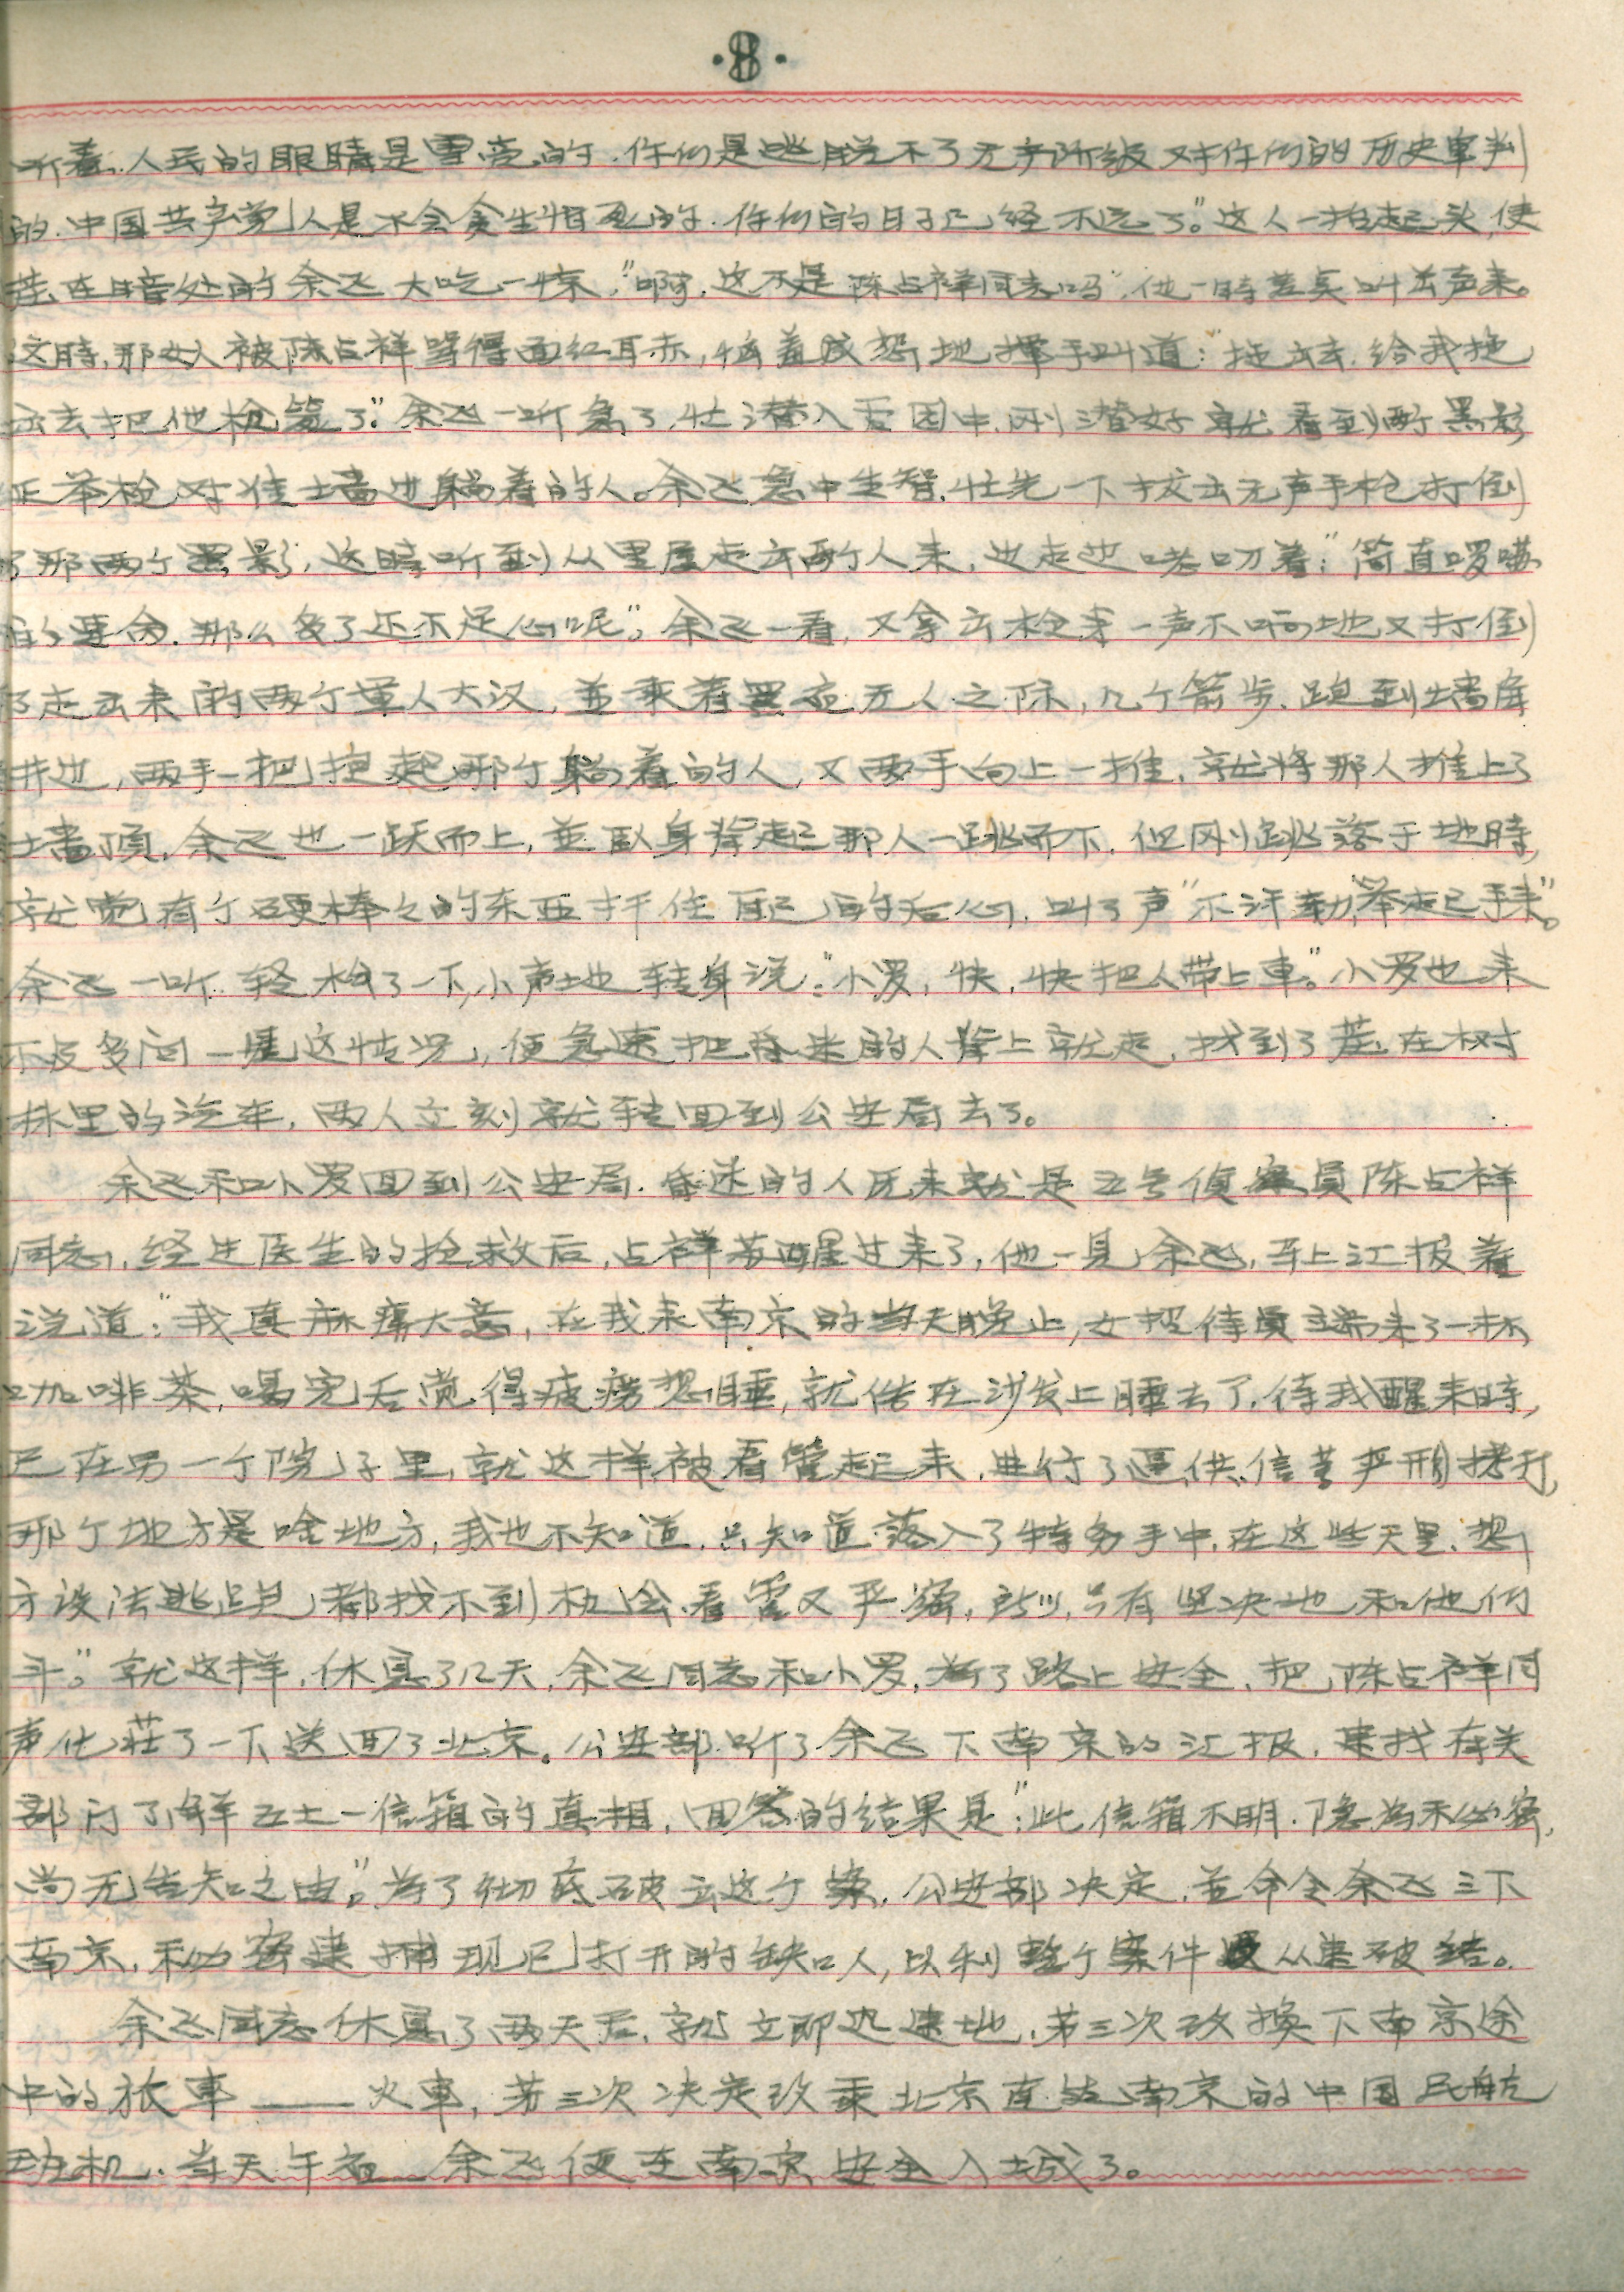 ·8·
听着，人民的眼睛是雪亮的，你们是逃脱不了无产阶级对你们的历史审判
的，中国共产党人是不会贪生怕死的，你们的日子已经不远了。”这人一抬起头，使
在暗处的余飞大吃一惊，“啊，这不是陈占祥同志吗”，他一時差点叫出声来。
这時，那女人被陈占祥骂得面红耳赤，恼羞成怒地挥手叫道：“拖出去，给我拖
出去把他枪毙了”。余飞一听急了，忙潜入花园中，刚潜好就看到两个黑影
正举枪对准墙边躺着的人。余飞急中生智，忙先一下拔出无声手枪打倒
了那两个黑影，这時听到从里屋走出两个人来，边走边唠叨着：“简直啰嗦
的要命，那么多了还不足心呢”，余飞一看，又拿出枪来一声不响地又打倒
了走出来的两个人大汉，並乘着黑夜无人之际，几个箭步，跑到墙
井边，两手一把抱起那个躺着的人，又两手向上一推，就将那人推上了
墙顶，余飞也一跃而上，並卧身背起那人一跳而下，但刚跳落于地時，
就觉有个硬棒々的东西扦住自己的后心，叫了声“不许动，举起手来”。
余飞一听轻松了一下，小声地转身说：“小罗，快，快把人带上車。”小罗也来
不及多问一些这情况，便急速把昏迷的人背上就走，找到了在树
林里的汽车，两人立刻就转回到公安局去了。
余飞和小罗回到公安局，昏迷的人原来就是五号侦察员陈占祥
同志，经过医生的抢救后，占祥苏醒过来了，他一见余飞，马上汇报着
说道：“我真麻痹大意，在我来南京的当天晚上，女招待员端来了一杯
咖啡茶，喝完后觉得疲痨想睡，就倦在沙发上睡去了，待我醒来時，
已在另一个院子里，就这样被看管起来，进行了逼供信莫严刑拷打，
那个地方是啥地方，我也不知道，只知道落入了特务手中，在这些天里，想
方设法逃跑，都找不到机会，看管又严密，所以，只有坚决地和他们
斗。”就这样，休息了几天，余飞同志和小罗，为了路上安全，把陈占祥同
声化莊了一下送回了北京。公安部听了余飞下南京的汇报，速找有关
部门了解五十一信箱的真相，回答的结果是：“此信箱不明，隐为秘密，
尚无告知之由”，为了彻底破出这个案，公安部决定，並命令余飞三下
南京，秘密速捕现已打开的缺口人，以利整个案件从速破结。
余飞同志休息了两天后，就立即迅速地，苐三次改换下南京途
中的旅車——火車，苐三次决定改乘北京直达南京的中国民航
飞机，当天午夜，余飞便在南京安全入城了。